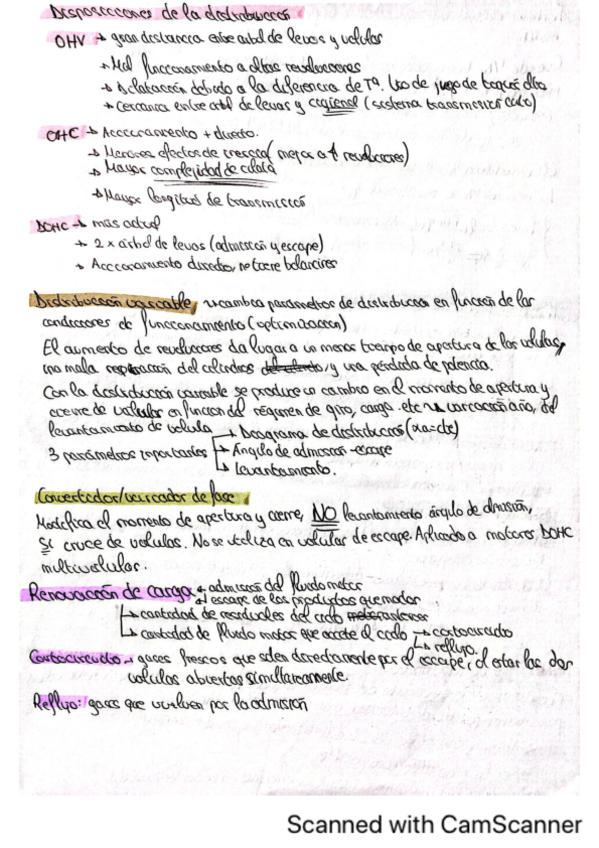 Disposiciones de la distribución
OHV → gran distancia entre arbol de levas y valvulas
→ Mal funcionamiento a altas revoluciones
→ Dilatación debido a la diferencia de Tª. Uso de juego de taqués alto
→ Cercania entre arbol de levas y cigüeñal (sistema transmision corto)
OHC → Accionamiento + directo.
→ Menores efectos de inercia (mejor a ↑ revoluciones)
→ Mayor complejidad de culata
→ Mayor longitud de transmisión
DOHC → más actual
→ 2 x árbol de levas (admision y escape)
→ Accionamiento directo, no tiene balancines
Distribución variable, cambia parámetros de distribucion en funcion de las
condiciones de funcionamiento (optimizacion)
El aumento de revoluciones da lugar a un menos tiempo de apertura de las valvulas,
una mala respiracion del cilindro y una pérdida de potencia.
Con la distribución variable se produce un cambio en el momento de apertura y
cierre de valvulas en funcion del régimen de giro, carga etc variación del
levantamiento de valvula
3 parámetros importantes → Diagrama de distribucion
→ Ángulo de admision - escape
→ Levantamiento.
Convertidor/variador de fase
Modifica el momento de apertura y cierre, NO levantamiento ángulo de admision,
SI cruce de valvulas. No se utiliza en valvulas de escape. Aplicado a motores DOHC
multivalvular.
Renovación de carga → admisión del fluido motor
→ escape de los productos quemados
→ cantidad de residuales del ciclo
→ cantidad de fluido motor que accede al ciclo → cortocircuito
→ reflujo.
Cortocircuito → gases frescos que salen directamente por el escape, al estar las dos
valvulas abiertas simultaneamente.
Reflujo: gases que vuelven por la admisión
Scanned with CamScanner